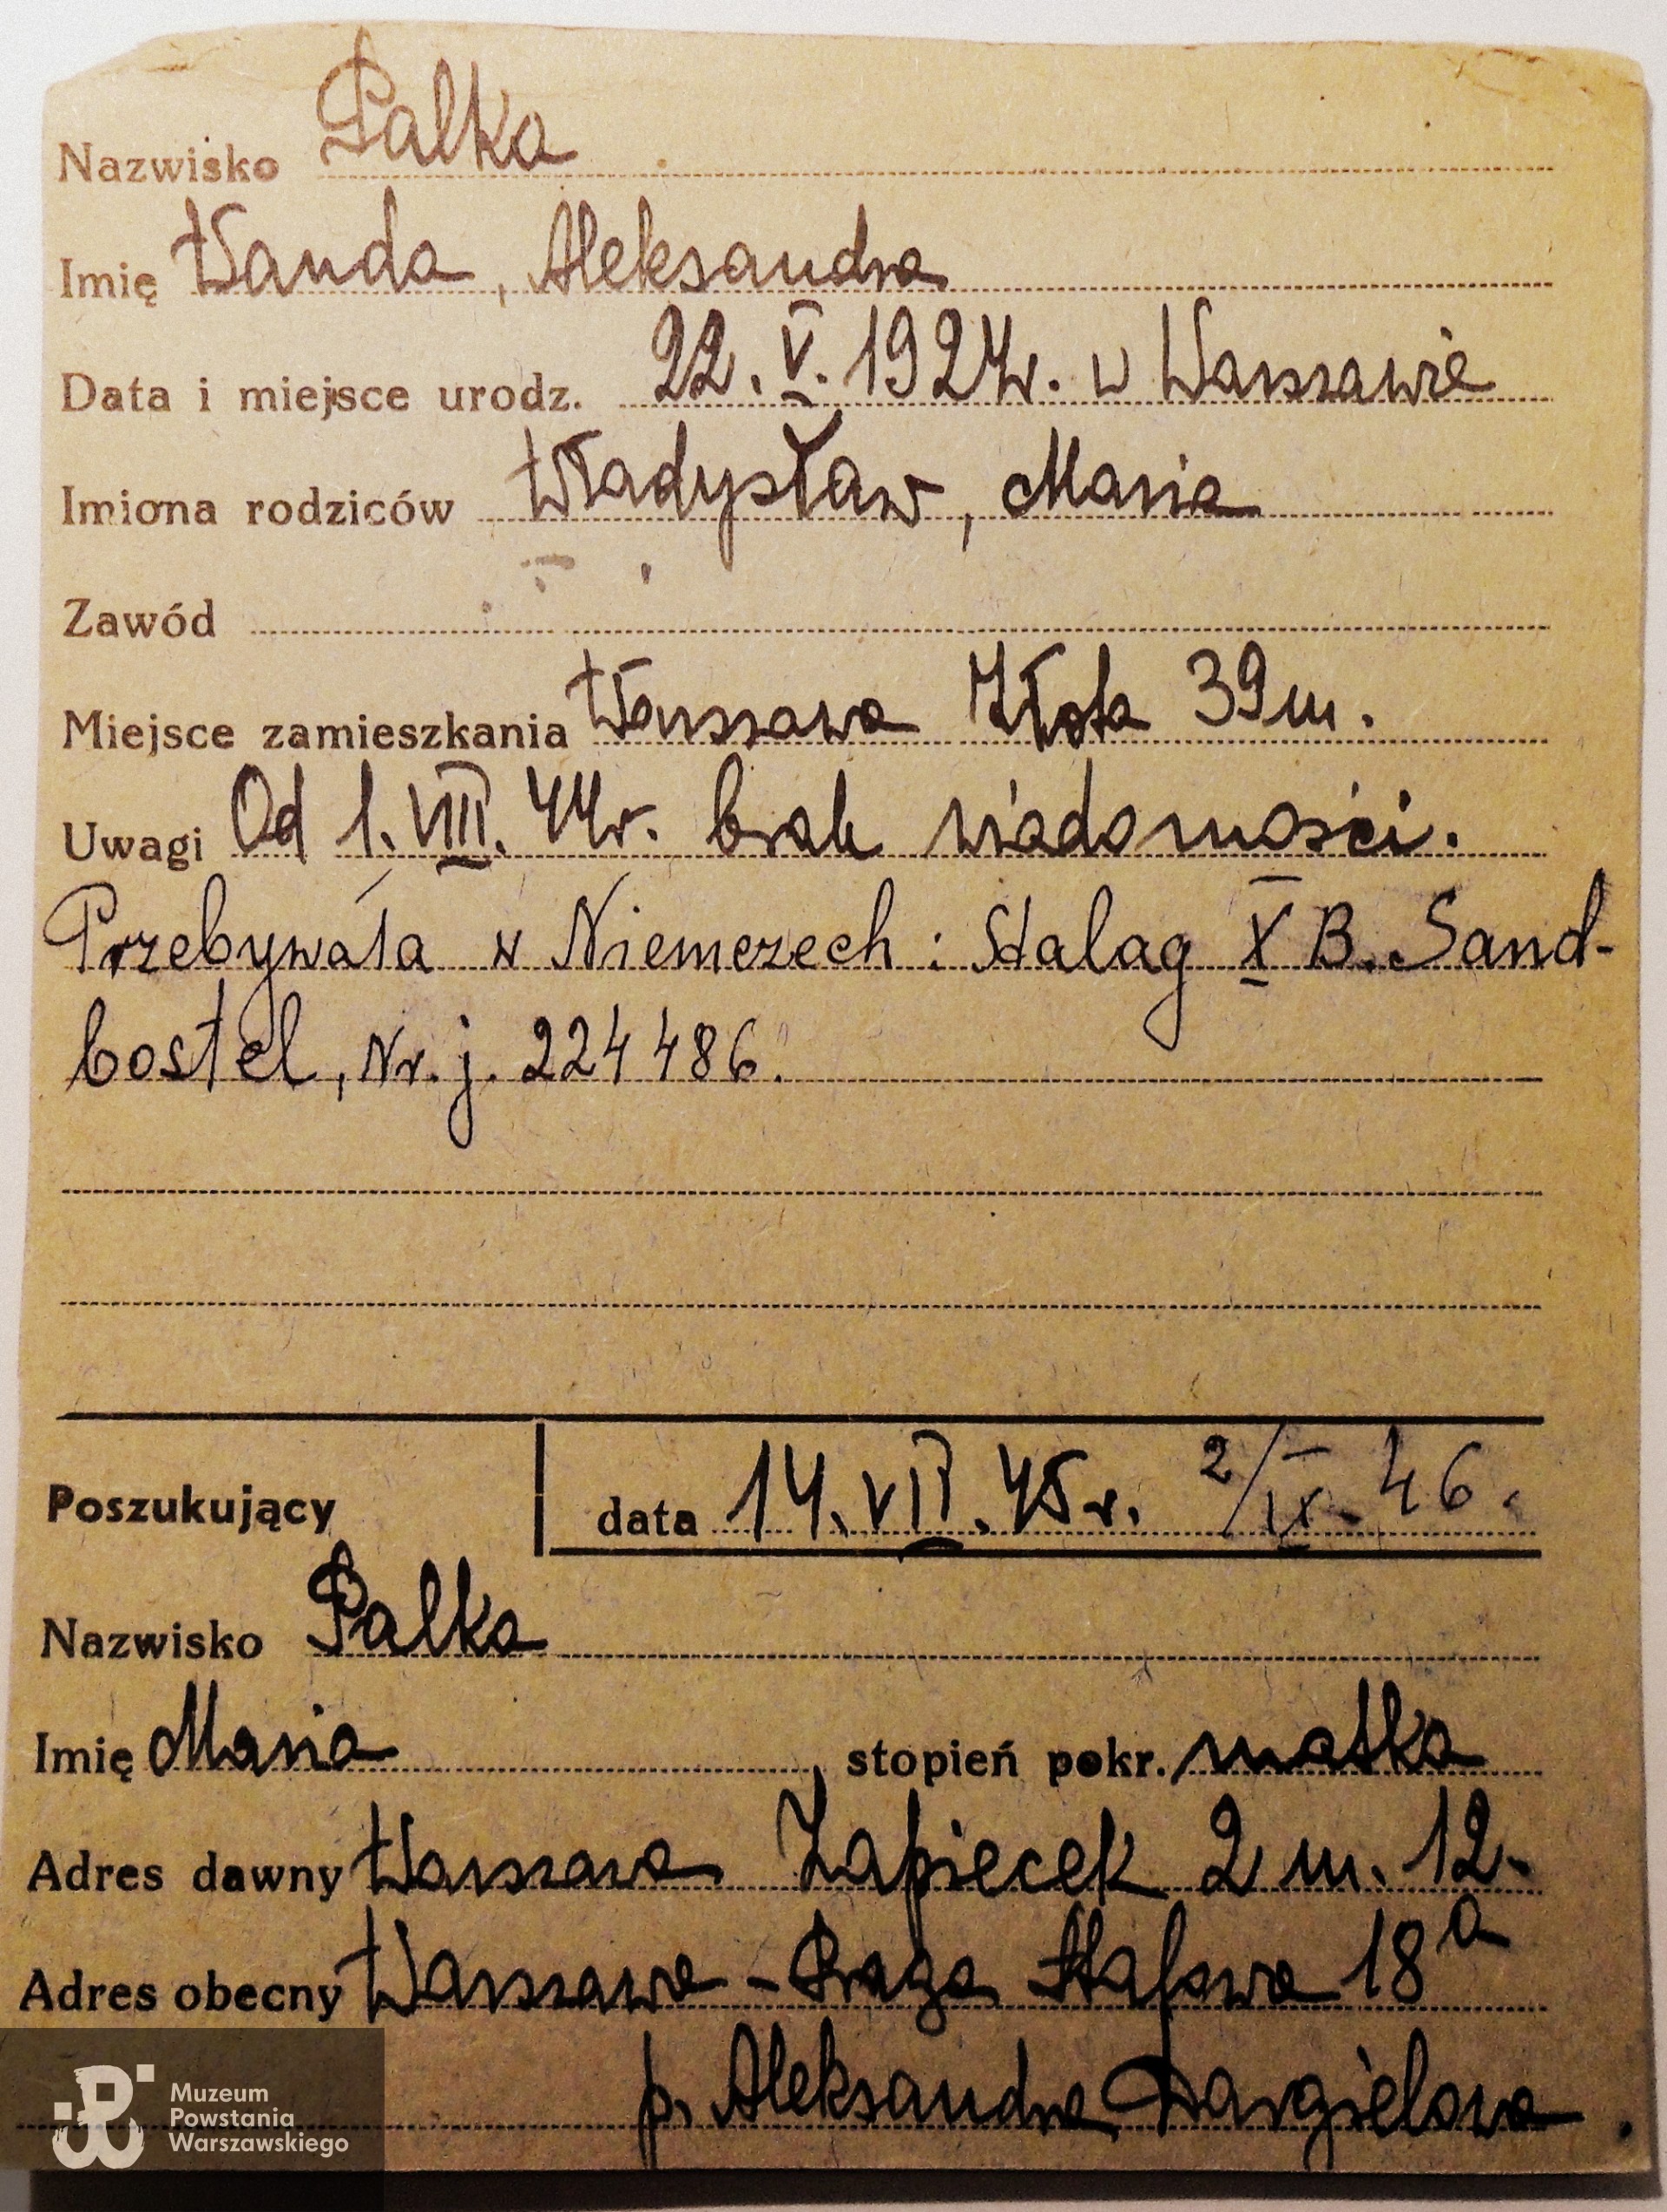 Nazwisko Palka
Imię Wanda, Aleksandra
Data i miejsce urodz. 22.V.1924r. w Warszawie
Imiona rodziców Władysław, Maria
Zawód
Miejsce zamieszkania Warszawa Złota 39 m.
Uwagi Od 1.VIII.44r. brak wiadomości.
Przebywała w Niemczech: Stalag X B. Sand-
bostel, Nr. j. 224486.
Poszukujący
data 14.VII.45r. 2/IX.46.
Nazwisko Palka
Imię Maria stopień pokr. matka
Adres dawny Warszawa Zapiecek 2 m. 12.
Adres obecny Warszawa - Praga Stalowa 18a
p. Aleksandra Dargielowa.
Muzeum
Powstania
Warszawskiego